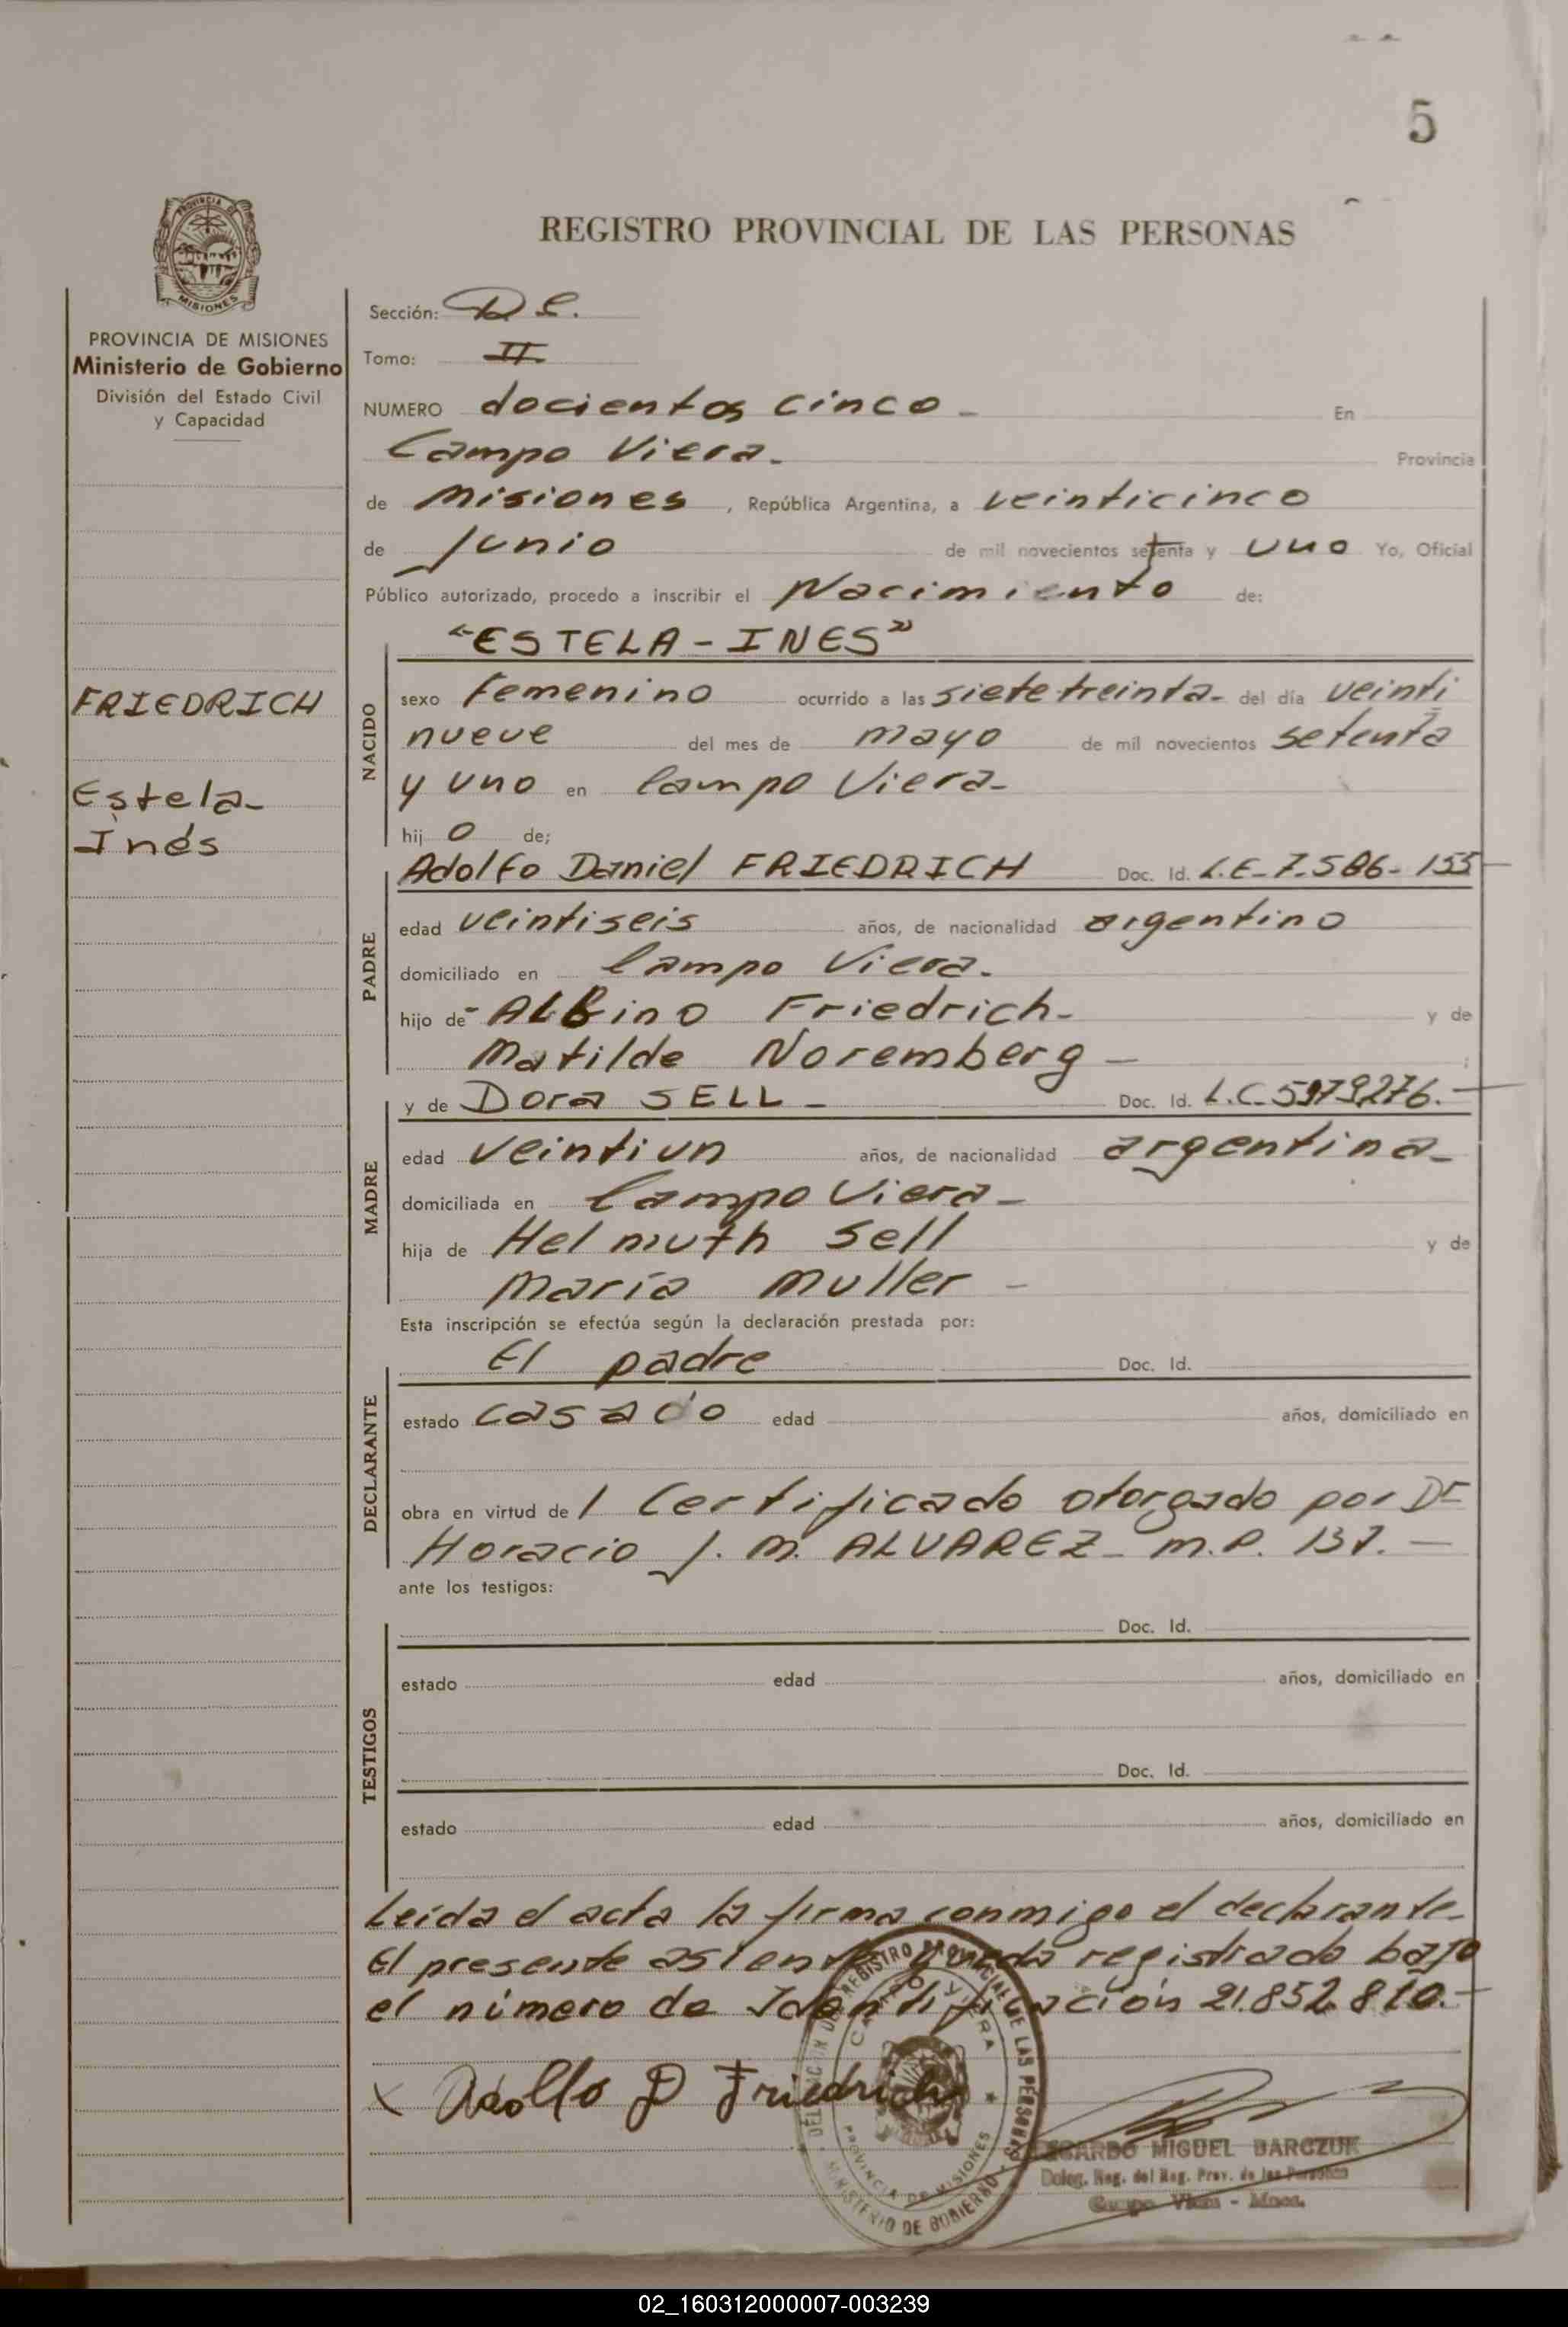 5
REGISTRO PROVINCIAL DE LAS PERSONAS
PROVINCIA DE MISIONES
Ministerio de Gobierno
División del Estado Civil
y Capacidad
FRIEDRICH
Estela-
Inés
Sección:
Tomo: II
NUMERO docientos cinco - En
Campo Viera. Provincia
de Misiones, República Argentina, a veinticinco
de Junio de mil novecientos setenta y uno Yo, Oficial
Público autorizado, procedo a inscribir el Nacimiento de:
"ESTELA - INES"
NACIDO
sexo Femenino ocurrido a las siete treinta- del día veinti
nueve del mes de mayo de mil novecientos setenta
y uno en Campo Viera-
hij o de;
Adolfo Daniel FRIEDRICH Doc. Id. L.E-7.586-155
PADRE
edad veintiseis años, de nacionalidad argentino
domiciliado en Campo Viera.
hijo de - ALBino Friedrich- y de
Matilde Noremberg - ;
y de Dora SELL - Doc. Id. L.C.5979276.-
MADRE
edad veintiun años, de nacionalidad argentina-
domiciliada en Campo Viera-
hija de Helmuth Sell y de
María Muller -
Esta inscripción se efectúa según la declaración prestada por:
El padre Doc. Id.
DECLARANTE
estado casado edad años, domiciliado en
obra en virtud de 1 Certificado otorgado por Dr
Horacio J. M. ALVAREZ- M.P. 137.-
ante los testigos:
TESTIGOS
Doc. Id.
estado edad años, domiciliado en
Doc. Id.
estado edad años, domiciliado en
Leída el acta la firma conmigo el declarante-
El presente asiento queda registrado bajo
el número de Identificación 21.852.810.-
x Adolfo D Friedrich
DELEGACION DEL REGISTRO PROVINCIAL DE LAS PERSONAS
CAMPO VIERA
PROVINCIA DE MISIONES
MINISTERIO DE GOBIERNO
MIGUEL BARCZUK
Deleg. Reg. del Reg. Prov. de las Personas
Campo Viera - Mnes.
02_160312000007-003239